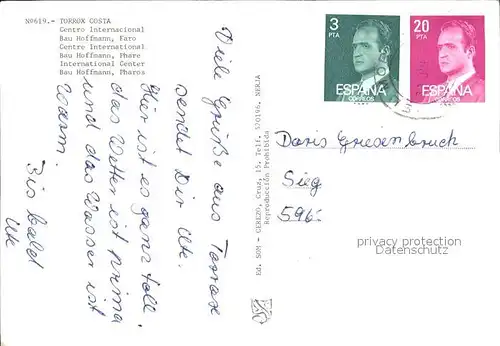 Nº619.- TORROX COSTA
Centro Internacional
Bau Hoffmann, Faro
Centre International
Bau Hoffmann, Phare
International Center
Bau Hoffmann, Pharos
Viele Grüße aus Torrox
sendet Dir Ute.
Hier ist es ganz toll.
das Wetter ist prima
und das Wasser ist
warm.
Bis bald
Ute
Ed. SOM - CEREZO, Cruz, 15, Telf. 520196, NERJA
Reproducción Prohibida
3
PTA
ESPAÑA
CORREOS
20
PTA
ESPAÑA
CORREOS
Doris Griesenbruch
Sieg
596
privacy protection
Datenschutz